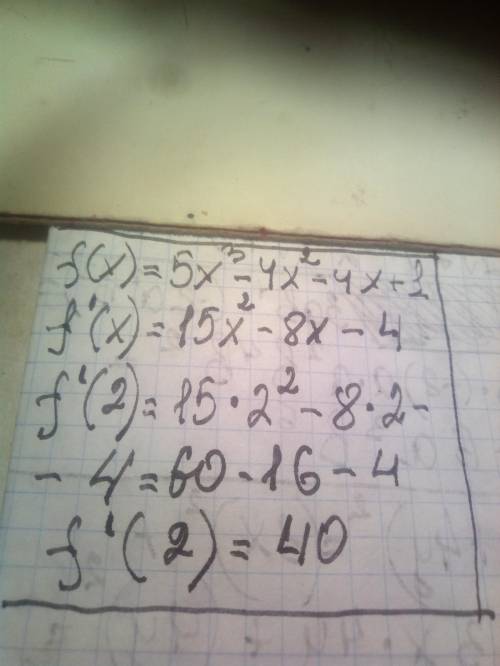 f(x)=5x³-4x²-4x+1
f'(x)=15x²-8x-4
f'(2)=15·2²-8·2-
-4=60-16-4
f'(2)=40